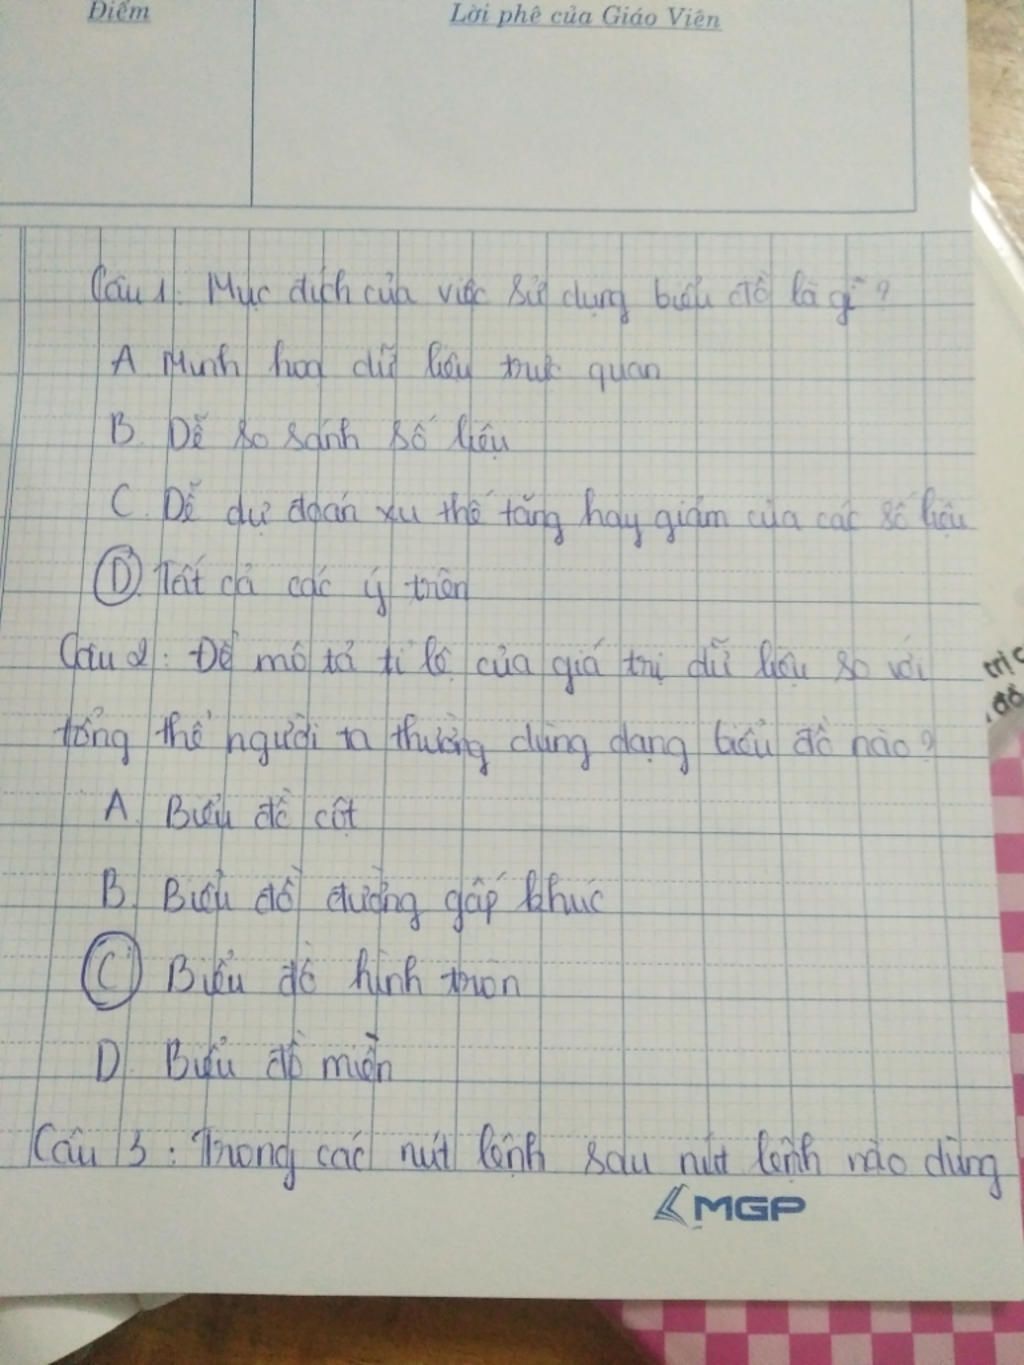 Điểm
Lời phê của Giáo Viên
Câu 1. Mục đích của việc sử dụng biểu đồ là gì?
A Minh hoạ dữ liệu trực quan
B. Dễ so sánh số liệu
C. Dễ dự đoán xu thế tăng hay giảm của các số liệu
D. Tất cả các ý trên
Câu 2: Để mô tả tỉ lệ của giá trị dữ liệu so với
tổng thể người ta thường dùng dạng biểu đồ nào?
A. Biểu đồ cột
B. Biểu đồ đường gấp khúc
C. Biểu đồ hình tròn
D. Biểu đồ miền
Câu 3: Trong các nút lệnh sau nút lệnh nào dùng
MGP
trị
đồ